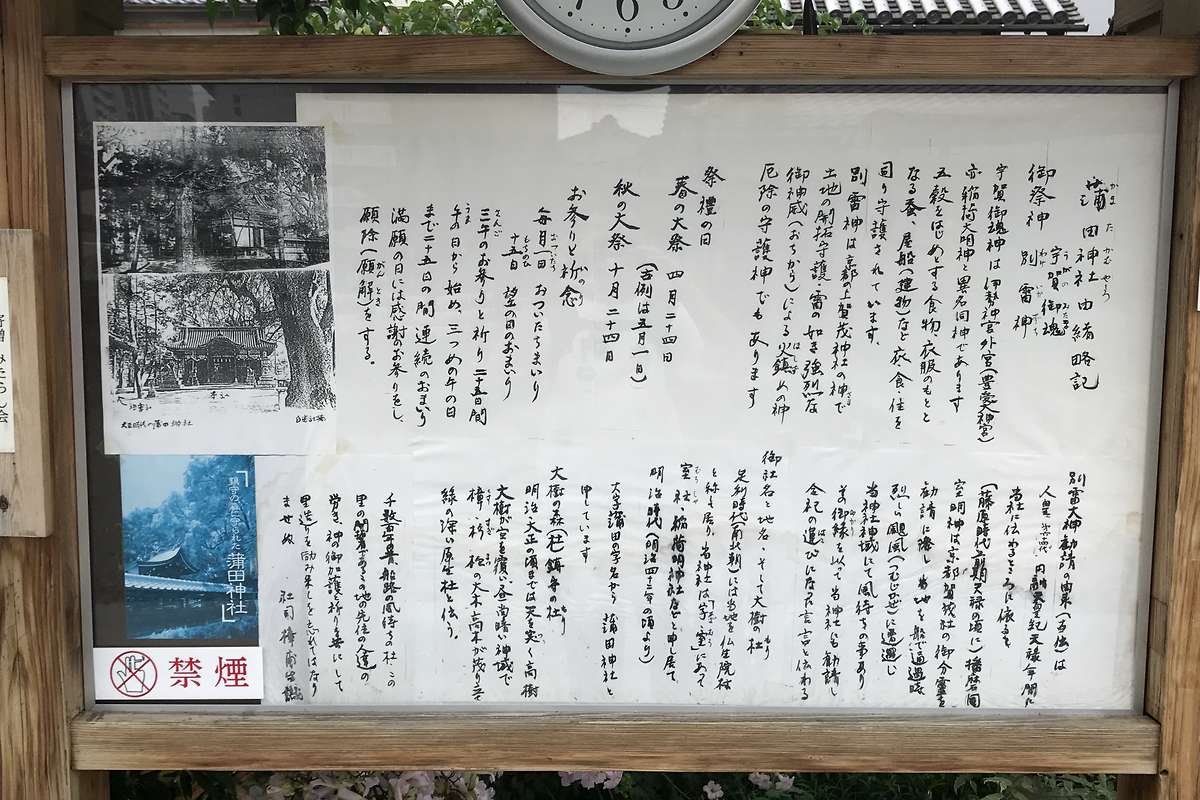 蒲田神社由緒略記
かま た かむ やしろ
御祭神 宇賀御魂
うがの みたま
別雷神
宇賀御魂神は伊勢神宮外宮(豊受大神宮)
亦稲荷大明神と異名同神であります
五穀をはじめする食物衣服のもとと
なる蚕、屋船(建物)など衣・食・住を
司り守護されています。
別雷神は京都の上賀茂神社の神で
土地の開拓守護・雷の如き強烈な
御神威(おちから)による火鎮めの神
厄除の守護神でもあります
祭禮の日
春の大祭 四月二十四日
(吉例は五月一日)
秋の大祭 十月二十四日
お参りと祈念
毎月一日 おついたちまいり
十五日 望の日のおまいり
三午のお参りと祈り二十五日間
午の日から始め、三つめの午の日
まで二十五日の間連続のおまいり
満願の日には感謝のお参りをし、
願除(願解)をする。
別雷大神勧請の由来(古伝)は
人皇 円融天皇紀天禄年間に
当社に伝わるところに依ると
(藤原時代前期天禄の頃に)播磨国
室明神は京都賀茂社の御分霊を
勧請に際し当地を船で通過時
烈しい颶風(つむじかぜ)に遭遇し
当神社神域にて風待ちの事あり
其御縁を以て当神社にも勧請し
合祀の運びになった言言と伝わる
御社名と地名・そして大樹の社
足利時代(南北朝)には当地を仏生院村
と称し居り、当神社は字「室」にあって
室社、稲荷明神社などと申し居て
明治時代(明治四十年の頃より)
大字蒲田の字名から 蒲田神社と
申しています
大樹の森(社)鎮守の社
明治・大正の頃までは天を突く高樹
大樹が空を覆い昼尚暗い神域で
樟・杉・松の大木・高木が茂り立て
緑の深い原生社と伝う。
千数百年昔、船路の風待ちの社 この
里の開拓者であるこの地の先住の人達の
労き、神の御加護と祈りを共にして
里造りを励み来しを忘れてはなり
ませぬ 社司
本社
大正時代の蒲田神社
「鎮守の森に守られた蒲田神社」
禁煙
6
みたらん会